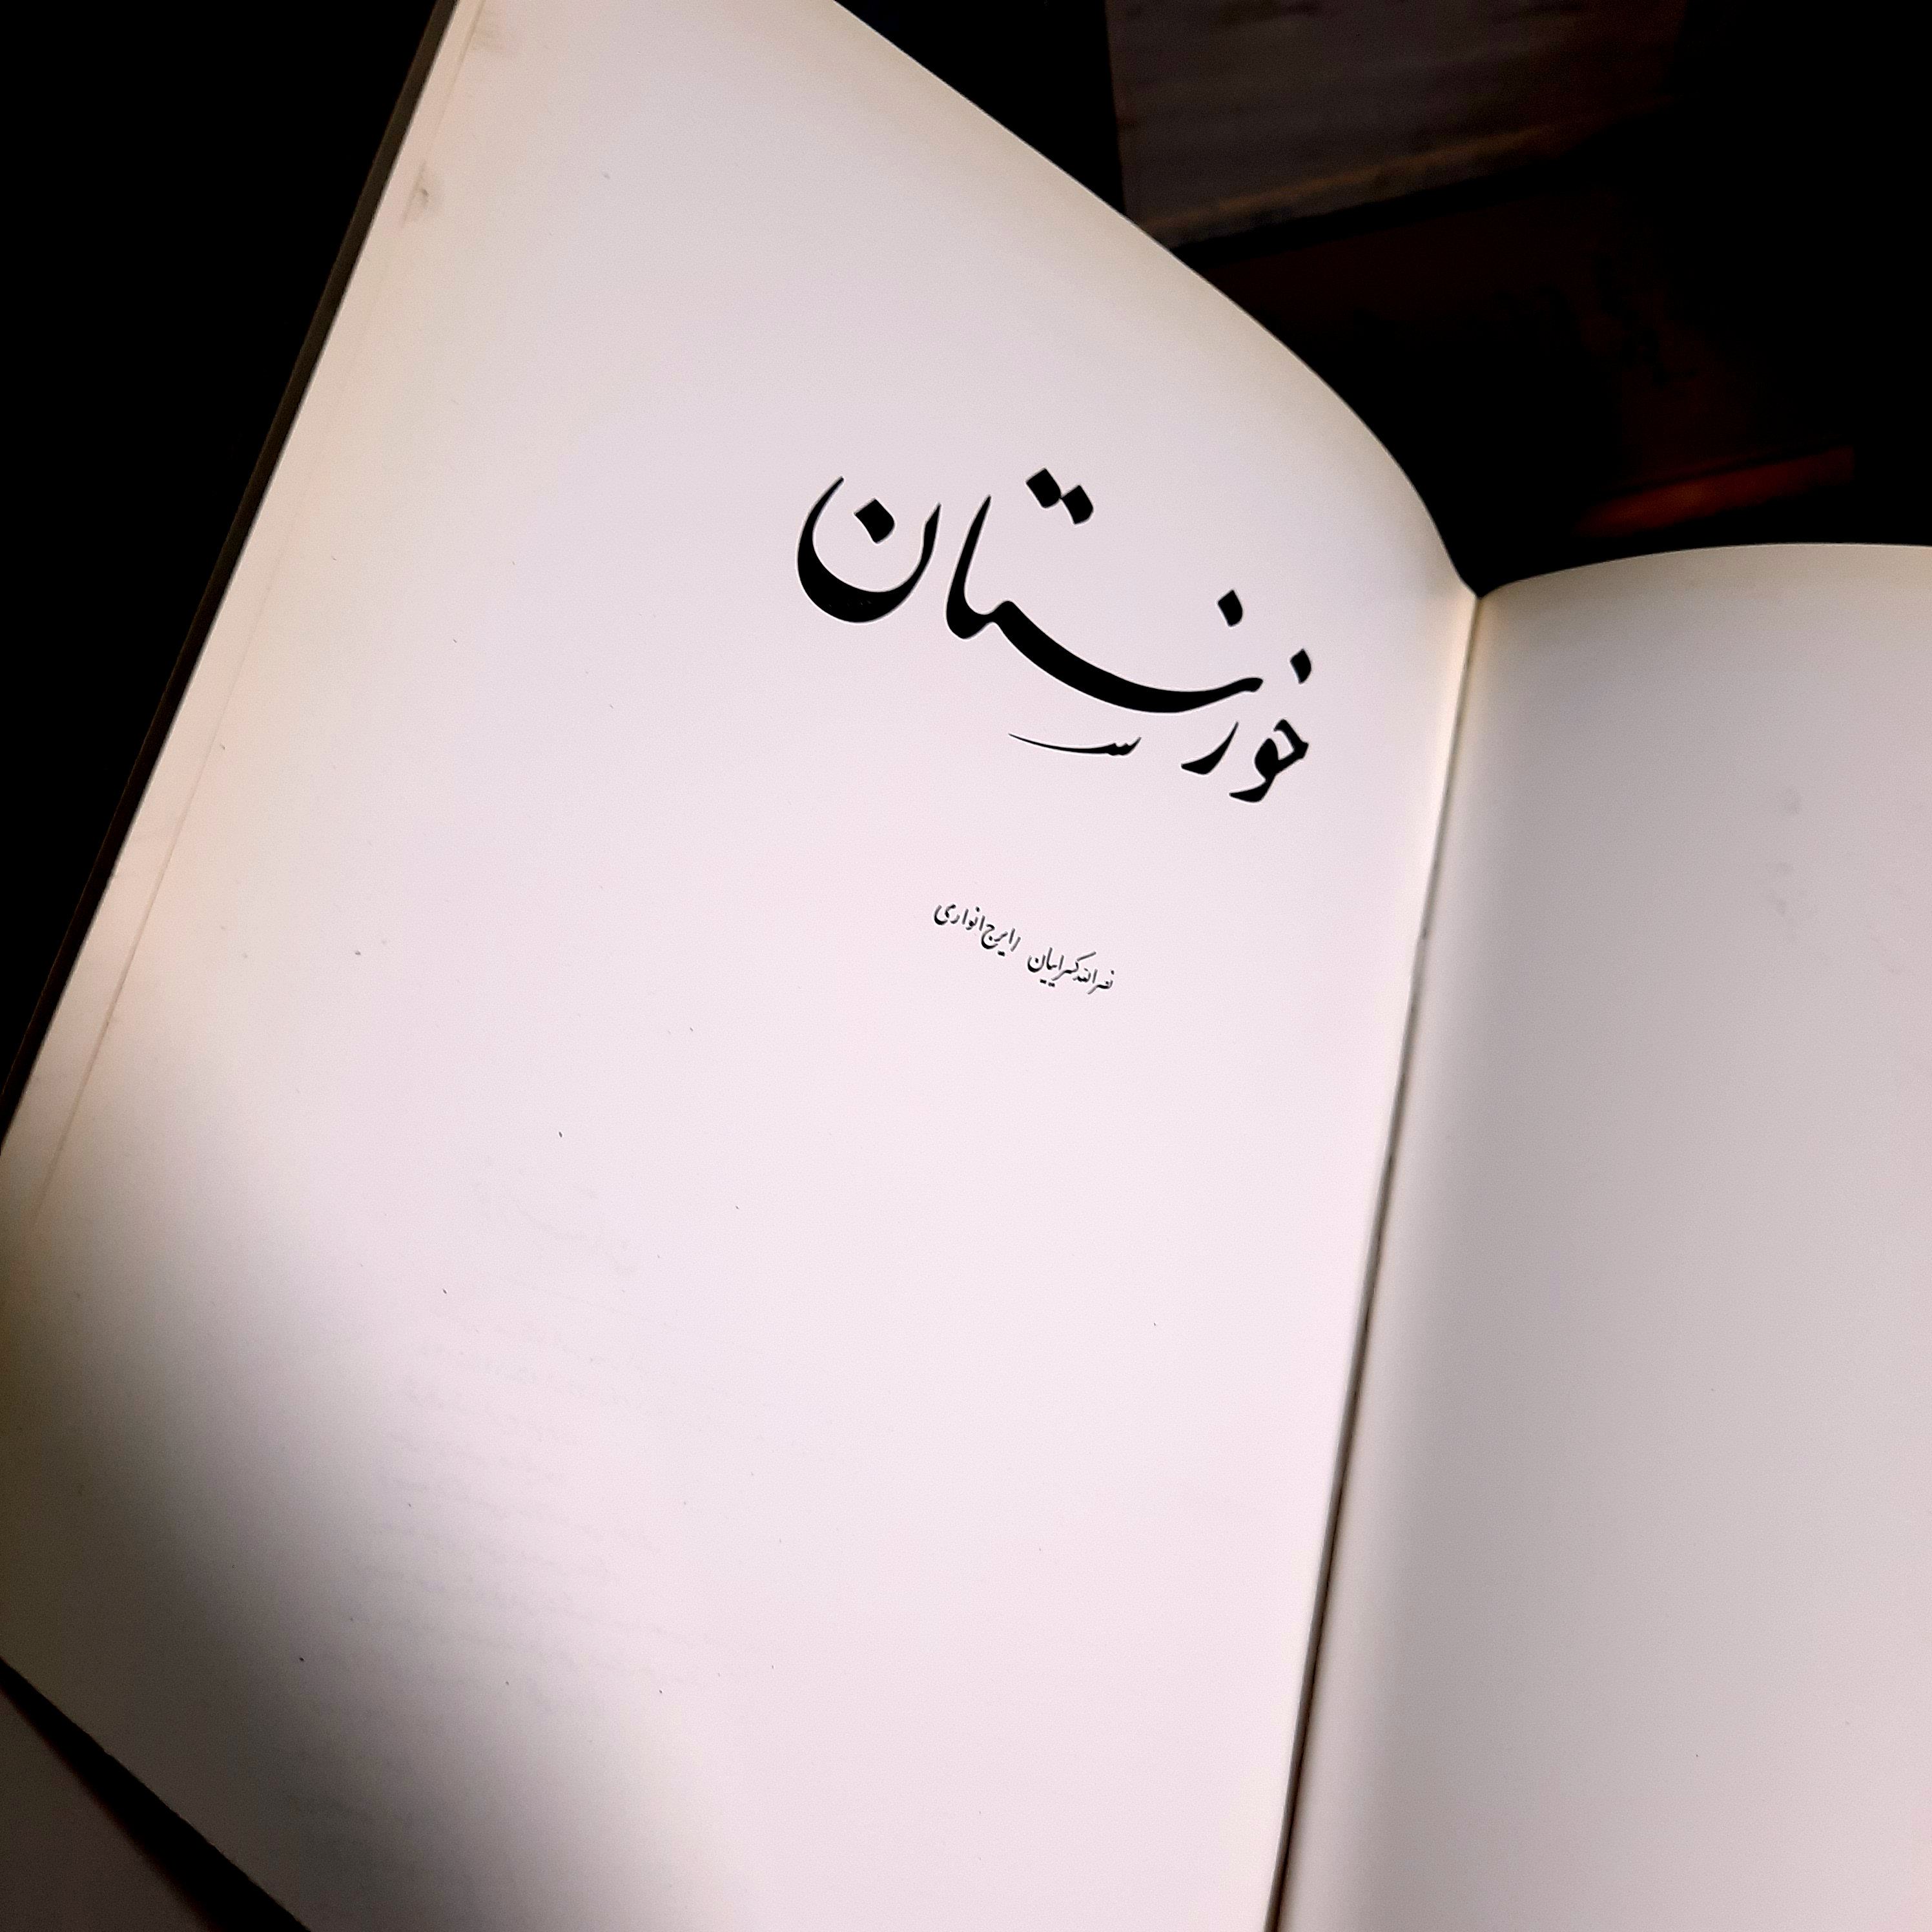 خوزستان
نصرالله کسرائیان / ایرج انواری